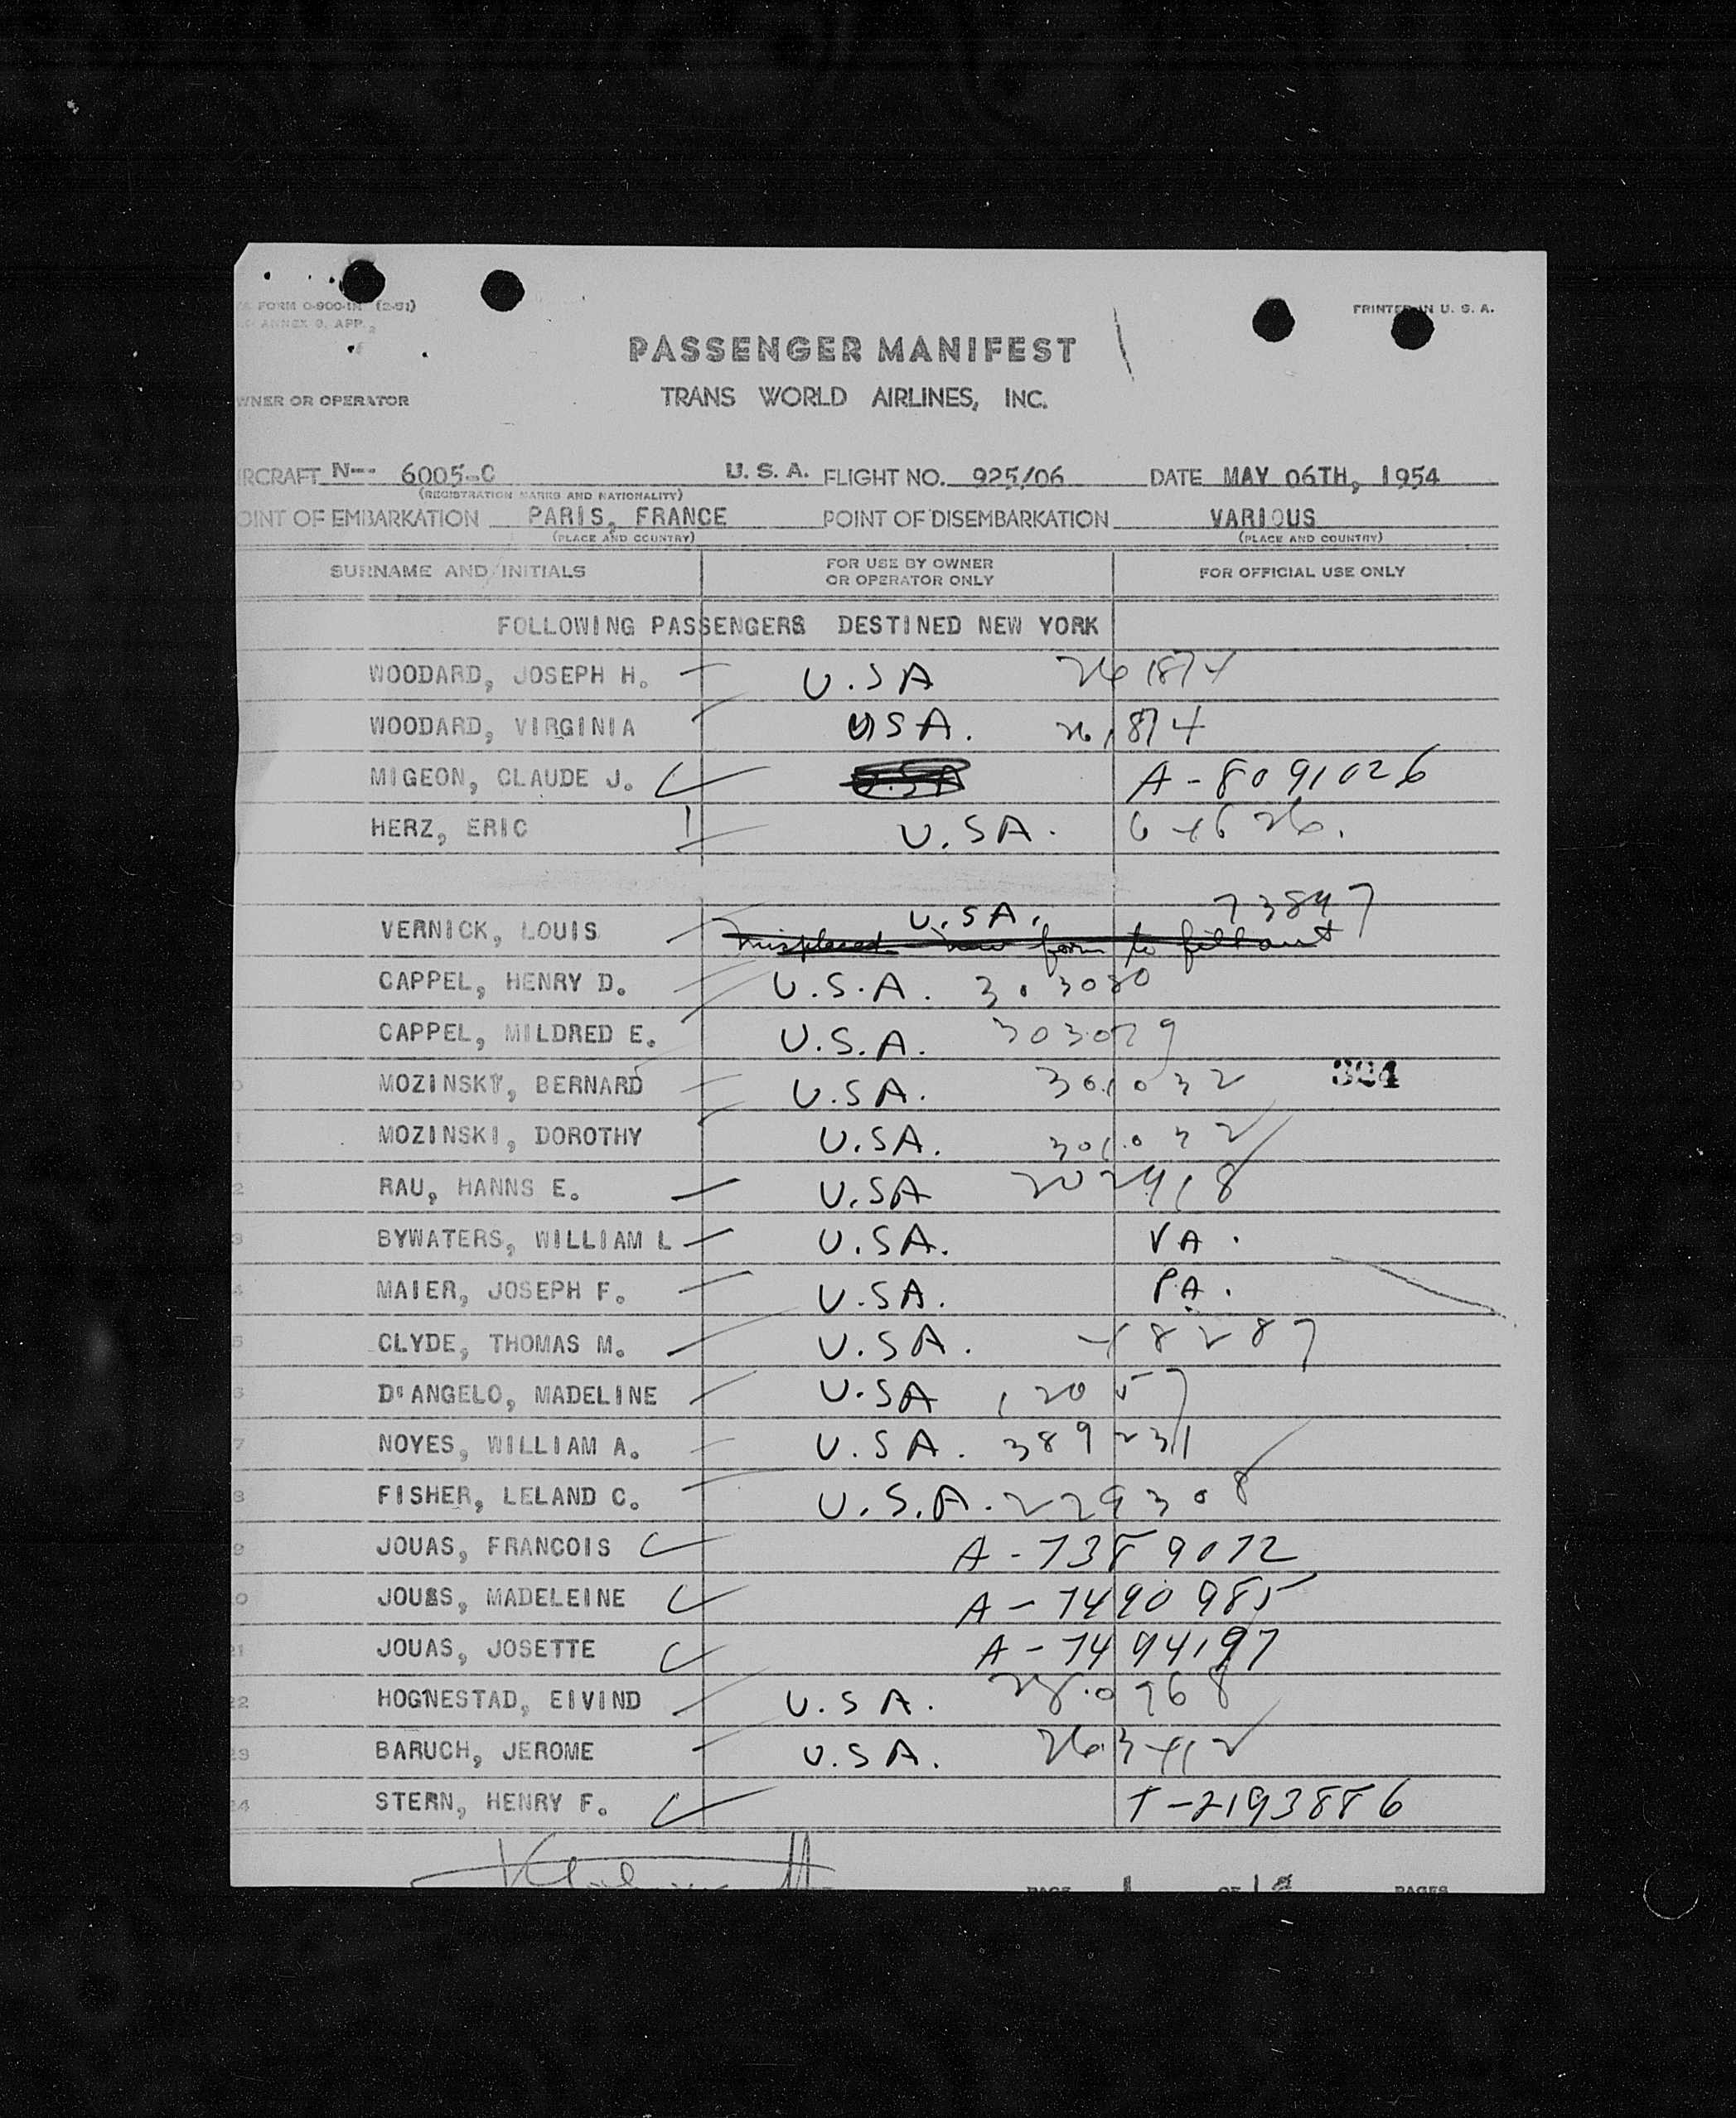 FORM 0-900-IN (2-51)
ANNEX 9, APP. 2
PRINTED IN U. S. A.
PASSENGER MANIFEST
TRANS WORLD AIRLINES, INC.
WNER OR OPERATOR
IRCRAFT N-- 6005-C U. S. A. FLIGHT NO. 925/06 DATE MAY 06TH, 1954
(REGISTRATION MARKS AND NATIONALITY)
OINT OF EMBARKATION PARIS, FRANCE POINT OF DISEMBARKATION VARIOUS
(PLACE AND COUNTRY) (PLACE AND COUNTRY)
SURNAME AND INITIALS FOR USE BY OWNER OR OPERATOR ONLY FOR OFFICIAL USE ONLY
FOLLOWING PASSENGERS DESTINED NEW YORK
WOODARD, JOSEPH H. U.SA 261874
WOODARD, VIRGINIA USA. 261874
MIGEON, CLAUDE J. U.SA A-8091026
HERZ, ERIC U.SA.
U.SA. 73847
VERNICK, LOUIS misplaced new form to fill out
CAPPEL, HENRY D. U.S.A. 303080
CAPPEL, MILDRED E. U.S.A. 303079
MOZINSKY, BERNARD U.SA. 301032 324
MOZINSKI, DOROTHY U.SA. 301032
RAU, HANNS E. U.SA 202418
BYWATERS, WILLIAM L U.SA. VA.
MAIER, JOSEPH F. U.SA. PA.
CLYDE, THOMAS M. U.SA. 48287
D'ANGELO, MADELINE U.SA 12057
NOYES, WILLIAM A. U.SA. 389231
FISHER, LELAND C. U.S.A. 229308
JOUAS, FRANCOIS A-7389072
JOUAS, MADELEINE A-7490985
JOUAS, JOSETTE A-7494197
22 HOGNESTAD, EIVIND U.SA. 280768
BARUCH, JEROME U.SA. 263412
STERN, HENRY F. T-2193886
PAGE 1 OF PAGES